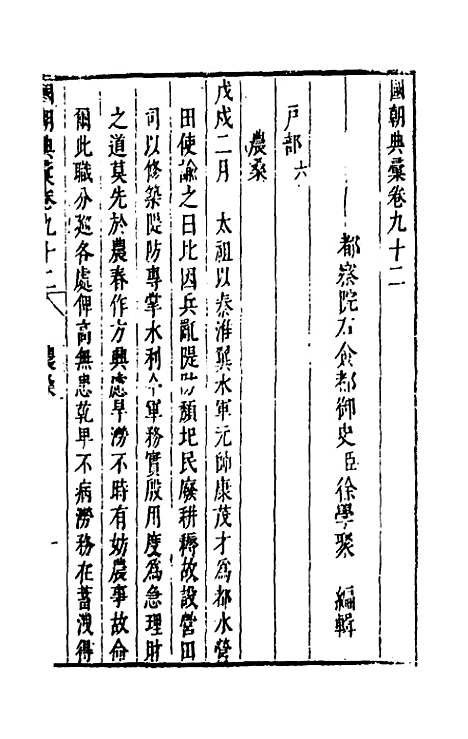 國朝典彙卷九十二
都察院右僉都御史臣徐學聚 編輯
戶部 六
農桑
戊戌二月 太祖以秦淮翼水軍元帥康茂才爲都水營
田使諭之曰比因兵亂隄防頹圯民廢耕耨故設營田
司以修築隄防專掌水利今軍務實殷用度爲急理財
之道莫先於農春作方興慮旱澇不時有妨農事故命
爾此職分巡各處俾高無患乾旱不病澇務在蓄洩得
國朝典彙卷九十二 農桑 一